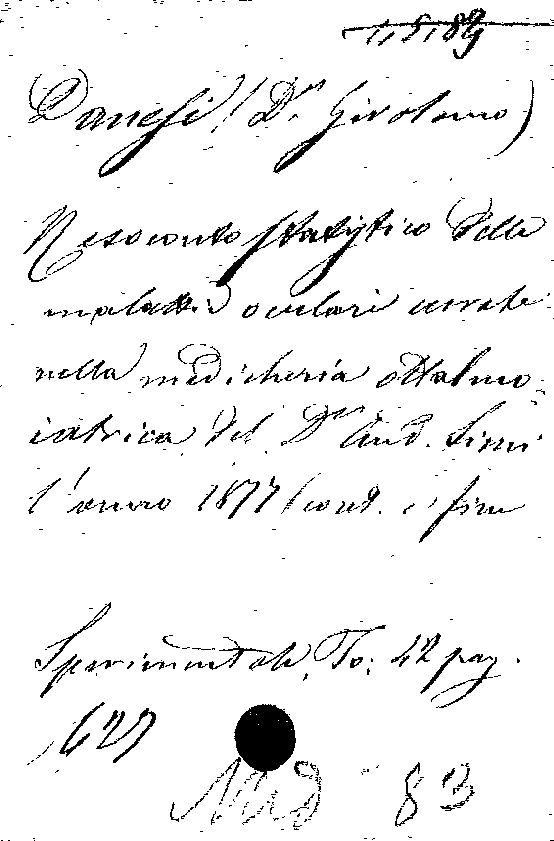 1,5,89
Danesi (Dr. Girolamo)
Resoconto statistico delle
malattie oculari curate
nella medicheria ottalmo-
iatrica del Dr And. Simi
l'anno 1877 (cont. e fine
Sperimentale, To: 42 pag.
627
Med 83